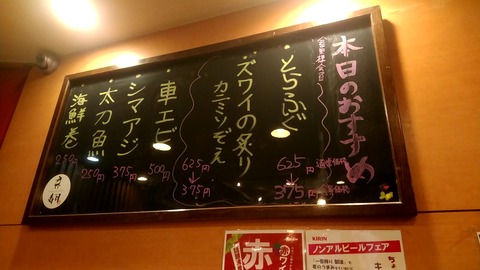 本日のおすすめ
とらふぐ
625円
375円
通常価格
ズワイの炙り
カニミソぞえ
625円
375円
車エビ
500円
シマアジ
375円
太刀魚
250円
海鮮巻
250円
赤
赤ワイ
KIRIN
ノンアルビールフェア
「一番搾り 製法」も